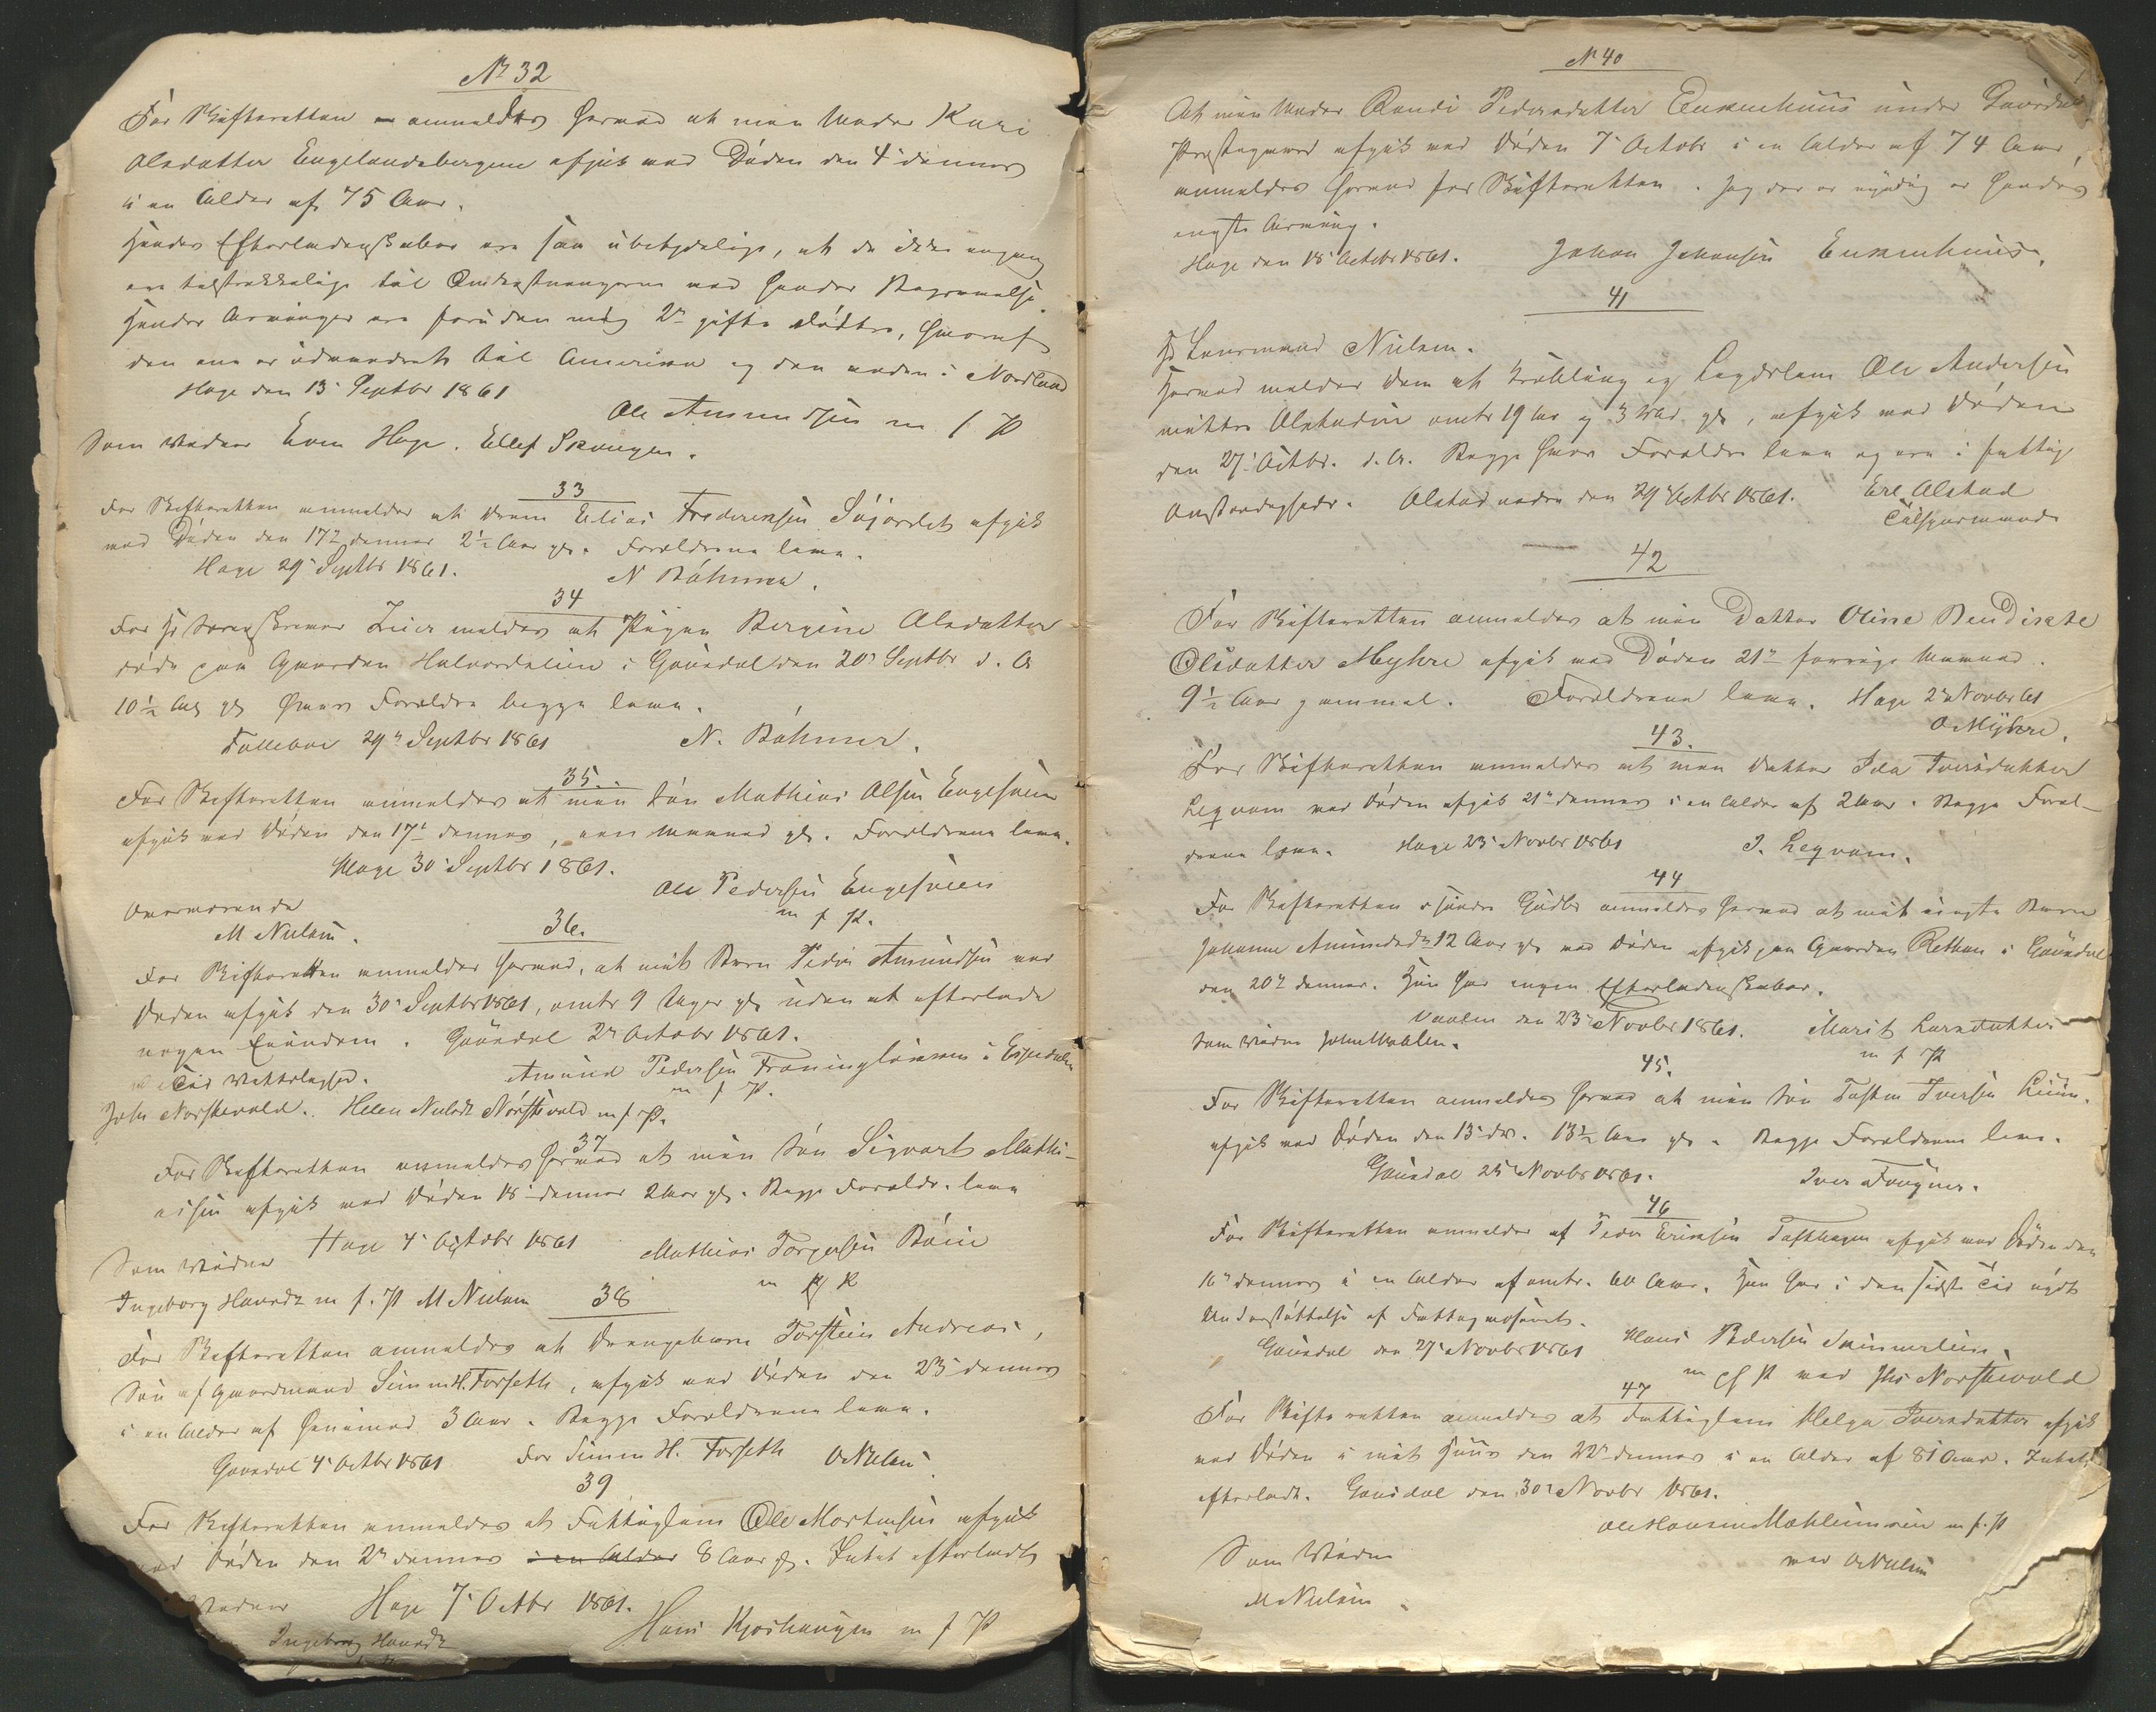 No 32
For Skifteretten anmeldes herved at min Moder Kari
Olsdatter Engelandsbergene afgik ved Døden den 4de dennes
i en Alder af 75 Aar.
Hendes Efterladenskaber ere saa ubetydelige, at de ikke engang
ere tilstrækkelige til Omkostningerne ved hendes Begravelse.
Hendes Arvinger ere foruden mig 2de gifte Døttre, hvoraf
den ene er udvandret til Amerika og den anden i Nordland
Hage den 13de Septbr 1861
Ole Amundsen m f P
Som Vidner Even Hage. Ellef Skougen.
33
For Skifteretten anmeldes at Dreng Elias Frederiksen Søjordet afgik
ved Døden den 17de dennes 2½ Aar gl. Forældrene leve.
Hage 29de Septbr 1861.
N Bøhmer.
34
For Hr Sorenskriver Zeier meldes at Pigen Bergine Olsdatter
døde paa Gaarden Halvordslien i Gausdal den 20de Septbr d. A
10½ Aar gl hvis Forældre begge leve.
Follebu 29de Septbr 1861
N. Bøhmer.
35.
For Skifteretten anmeldes at min Søn Mathias Olsen Engesveen
afgik ved Døden den 17de dennes, een Maaned gl. Forældrene leve.
Hage 30de Septbr 1861.
Ole Pedersen Engesveen
m f P.
Overværende
M Nielsen.
36.
For Skifteretten anmeldes herved, at mit Barn Peder Amundsen ved
Døden afgik den 30de Septbr 1861, omtr 9 Uger gl uden at efterlade
nogen Eiendom. Gausdal 2de Octobr 1861.
Amund Pedersen i Espedalen
m f P.
til Vitterlighed.
John Norstevold. Helene Nielsdt Norstevold m f P.
37
For Skifteretten anmeldes herved at min Søn Sigvart Mathi-
asen afgik ved Døden 18de dennes 2 Aar gl. Begge Forældr. leve
Hage 4de October 1861
Mathias Torgersen Bøeie
m f P
Som Vidner
Ingeborg Havrdt m f. P M Nielsen
38
For Skifteretten anmeldes at Drengebarn Torstein Andreas,
Søn af Gaardmand Simen H. Forseth, afgik ved Døden den 23de dennes
i en Alder af henimod 3 Aar. Begge Forældrene leve.
Gausdal 4de Octbr 1861
For Simen H. Forseth
O Nielsen.
39
For Skifteretten anmeldes at Fattiglem Ole Mortensen afgik
ved Døden den 2de dennes i en Alder 8 Aar gl. Intet efterladt
Vidner
Hage 7de Octbr 1861.
Hans Kjoshaugen m f P
Ingeborg Havrdt
No 40
At min Moder Randi Pedersdatter Enkenhuus under Gausdals
Præstegaard afgik ved Døden 7de Octobr i en Alder af 74 Aar,
anmeldes herved for Skifteretten. Jeg der er myndig er hendes
eneste Arving.
Hage den 18de Octobr 1861.
Johan Johansen Enkenhuus.
41
Hr Lensmand Nielsen.
Herved meldes Dem at Krøbling og Lægdslem Ole Andersen
Olstadeie omtr 19 Aar og 3 Md. gl, afgik ved Døden
den 27de Octbr. d. A. Begge hvis Forældre leve og ere i fattige
Omstændigheder. Olstad nedre den 29de Octbr 1861.
Erl. Olstad
Tilsynsmand
42
For Skifteretten anmeldes at min Datter Oline Bendikte
Olsdatter Myhre afgik ved Døden 21de forrige Maaned.
9½ Aar gammel. Forældrene leve. Hage 2de Novbr 61
O. Myhre.
43.
For Skifteretten anmeldes at min Datter Ida Iversdatter
Leqvam ved Døden afgik 21de dennes i en Alder af 2 Aar. Begge Foræl-
drene leve. Hage 23de Novbr 1861
I. Leqvam.
44
For Skifteretten i søndre Gudbr anmeldes herved at mit eneste Barn
Johanne Amundsdr 12 Aar gl ved Døden afgik paa Gaarden Retten i Gausdal
den 20de dennes. Hun har ingen Efterladenskaber.
den 23de Novbr 1861.
Marit Larsdatter
m f P
Som Vidne John Mæhlen.
45.
For Skifteretten anmeldes herved at min Søn Tosten Iversen Liien.
afgik ved Døden den 13de ds. 13½ Aar gl. Begge Forældrene leve.
Gausdal 25de Novbr 1861.
Iver Fougner.
46
For Skifteretten anmeldes at Peder Eriksen Tofthagen afgik ved Døden den
16de dennes i en Alder af omtr. 60 Aar. Han har i den sidste Tid nydt
Understøttelse af Fattigvæsenet.
Gausdal den 27de Novbr 1861
Hans Pedersen
m f P ved Jhs Norstevold
47
For Skifteretten anmeldes at Fattiglem Helga Iversdatter afgik
ved Døden i mit Huus den 22de dennes i en Alder af 81 Aar. Intet
efterladt. Gausdal den 30de Novbr 1861.
Ole Hansen Mæhlumseie m f. P
ved O Nielsen
Som Vidne
M Nielsen.